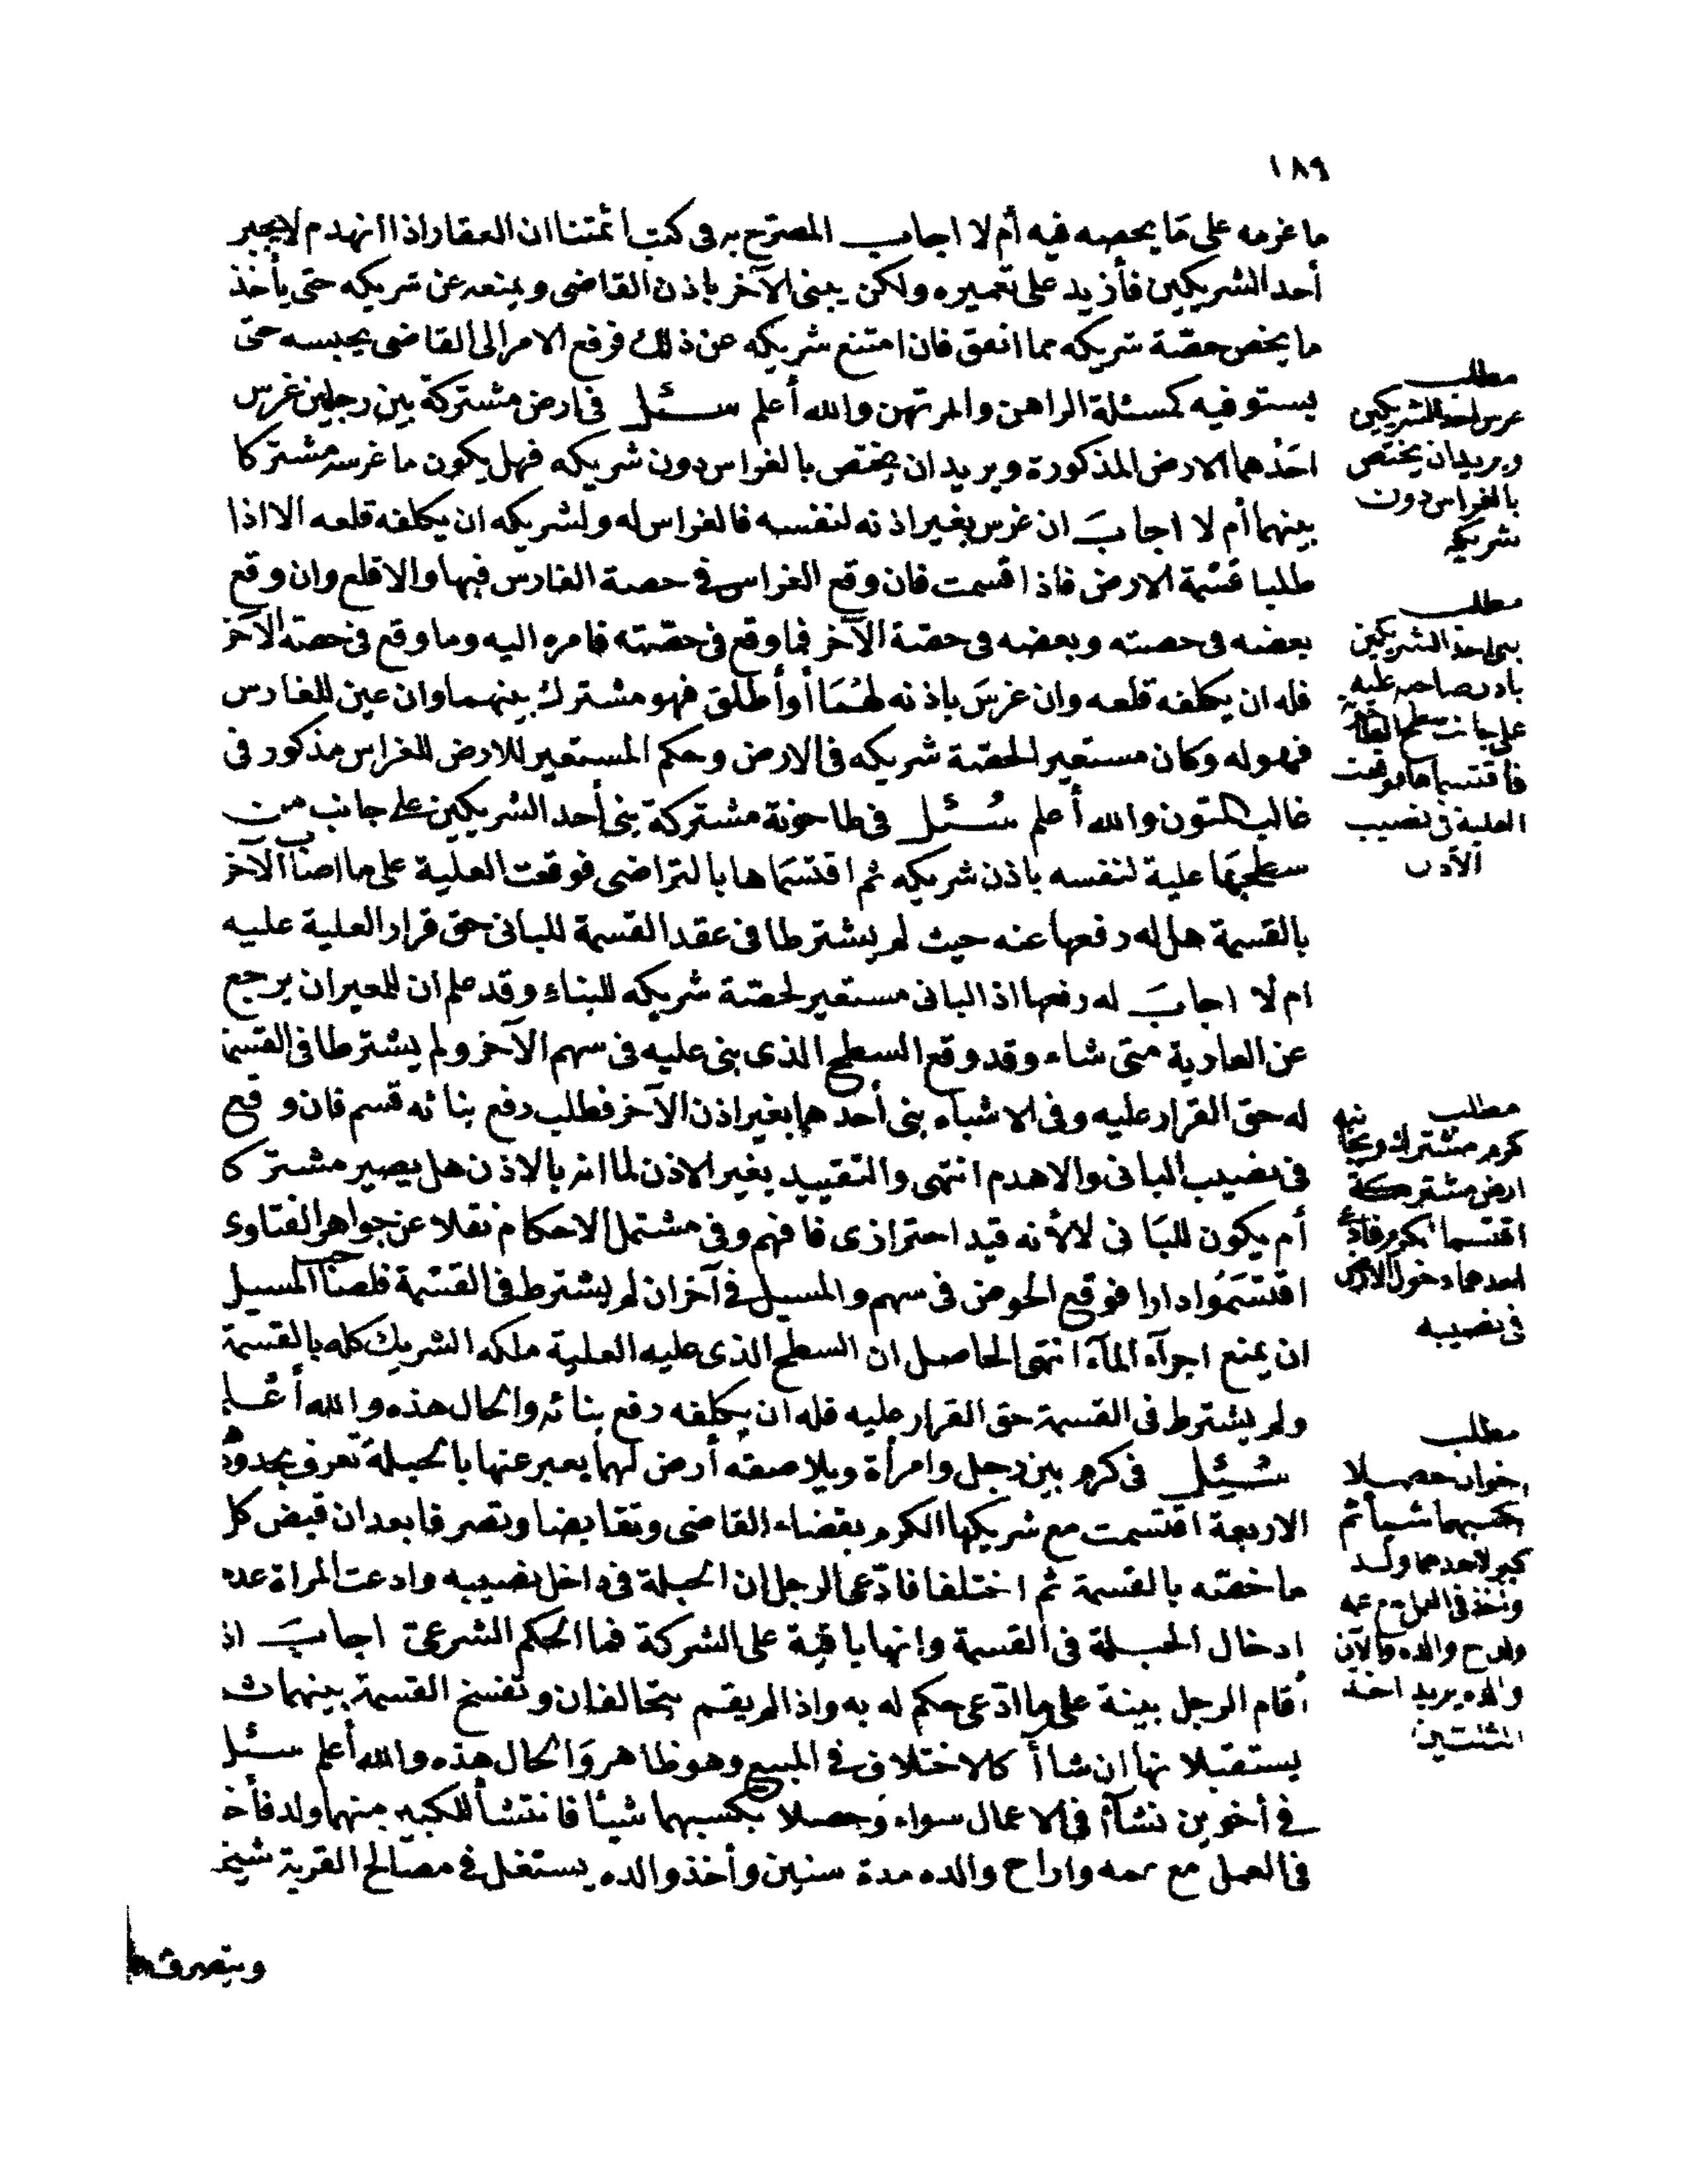 ١٨٩
ما غرمه على مَا يحصه فيه أم لا اجاب المصرّح به فى كتب ائمتنا ان العقار اذا انهدم لا يجبر
أحد الشريكين فأزيد على تعميره ولكن يبنى الآخر باذن القاضى ويمنعه عن شريكه حتى يأخذ
ما يخص حصّة شريكه مما انفق فان امتنع شريكه عن ذلك فرفع الامر الى القاضى يحبسه حتى
يستوفيه كمسئلة الراهن والمرتهن والله أعلم سئل فى ارض مشتركة بين رجلين غرس
احَدُهما الارض المذكورة ويريد ان يختص بالغراس دون شريكه فهل يكون ما غرسه مشتركا
بينهما أم لا اجابَ ان غرس بغير اذنه لنفسه فالغراس له ولشريكه ان يكلفه قلعه الا اذا
طلبا قسْمة الارض فاذا قسمت فان وقع الغراس فى حصة الغارس فبها والا قلع وان وقع
بعضه فى حصته وبعضه فى حصّة الآخر فما وقع فى حصّته فامره اليه وما وقع فى حصة الآخر
فله ان يكلفه قلعه وان غرسَ باذنه لهُمَا أو أطلق فهو مشترك بينهما وان عين للغارس
فهو له وكان مستعير الحصّة شريكه فى الارض وحكم المستعير للارض للغراس مذكور فى
غالب المتون والله أعلم سُئل فى طاحونة مشتركة بنى أحد الشريكين على جانب من
سطحهَا علية لنفسه باذن شريكه ثم اقتسَماها بالتراضى فوقعت العلية على ما اصاب الآخر
بالقسمة هل له رفعها عنه حيث لم يشترطا فى عقد القسمة للبانى حق قرار العلية عليه
ام لا اجابَ له رفعها اذ البانى مستعير لحصّة شريكه للبناء وقد علم ان للمعير ان يرجع
عن العارية متى شاء وقد وقع السطح الذى بنى عليه فى سهم الآخر ولم يشترطا فى القسمة
له حق القرار عليه وفى الاشباه بنى أحدهما بغير اذن الآخر فطلب رفع بنائه قسم فان وقع
فى نصيب البانى والا هدم انتهى والتقييد بغير الاذن لما انه بالاذن هل يصير مشتركا
أم يكون للبَانى لا لأنه قيد احترازى فافهم وفى مشتمل الاحكام نقلا عن جواهر الفتاوى
اقتسَمُوا دارا فوقع الحوض فى سهم والمسيل فى آخر ان لم يشترط فى القسْمة فلصاحب المسيل
ان يمنع اجرآء المآء انتهى الحاصل ان السطح الذى عليه العلية ملكه الشريك كله بالقسمة
ولم يشترط فى القسمة حق القرار عليه فله ان يكلفه رفع بنائه والحال هذه والله أعْلم
سُئِل فى كرم بين رجل وامرأة ويلاصقه أرض لهما يعبر عنها بالحبلة تعرف بحدوده
الاربعة اقتسمت مع شريكها الكرم بقضاء القاضى وتقابضا وتصرفا بعد ان قبض كل
ما خصّته بالقسمة ثم اختلفا فادّعى الرجل ان الحبلة فى داخل نصيبه وادعت المراة عدم
ادخال الحبلة فى القسمة وانها باقية على الشركة فما الحكم الشرعىّ اجابَ اذا
أقام الرجل بينة على ما ادّعى حكم له به واذا لم يقم يتحالفان وتفسخ القسمة بينهما ثم
يستقبلانها ان شاآ كالاختلاف فى المبيع وهو ظاهر وَالحال هذه والله أعلم سئل
فى أخوين نشآ فى الاعمال سواء وَحصلا بكسبهما شيئا فانتشأ للكبير منهما ولد فأخذ
فى العمل مع عمه واراح والده مدة سنين وأخذ والده يستغل فى مصالح القرية شيخا
ويتصرف
مطلب
غرس احد الشريكين
ويريد ان يختص
بالغراس دون
شريكه
مطلب
بنى احد الشريكين
باذن صاحبه علية
على جانب سطح
فاقتسماها فوقعت
العلية فى نصيب
الآذن
مطلب
كرم مشترك وبجانبه
ارض مشتركة
اقتسما الكرم فادعى
احدهما دخول الارض
فى نصيبه
مطلب
اخوان حصلا
بكسبهما شيأ ثم
كبر لاحدهما ولد
واخذ فى العمل مع عمه
واراح والده والآن
والده يريد اخذ
الثلثين